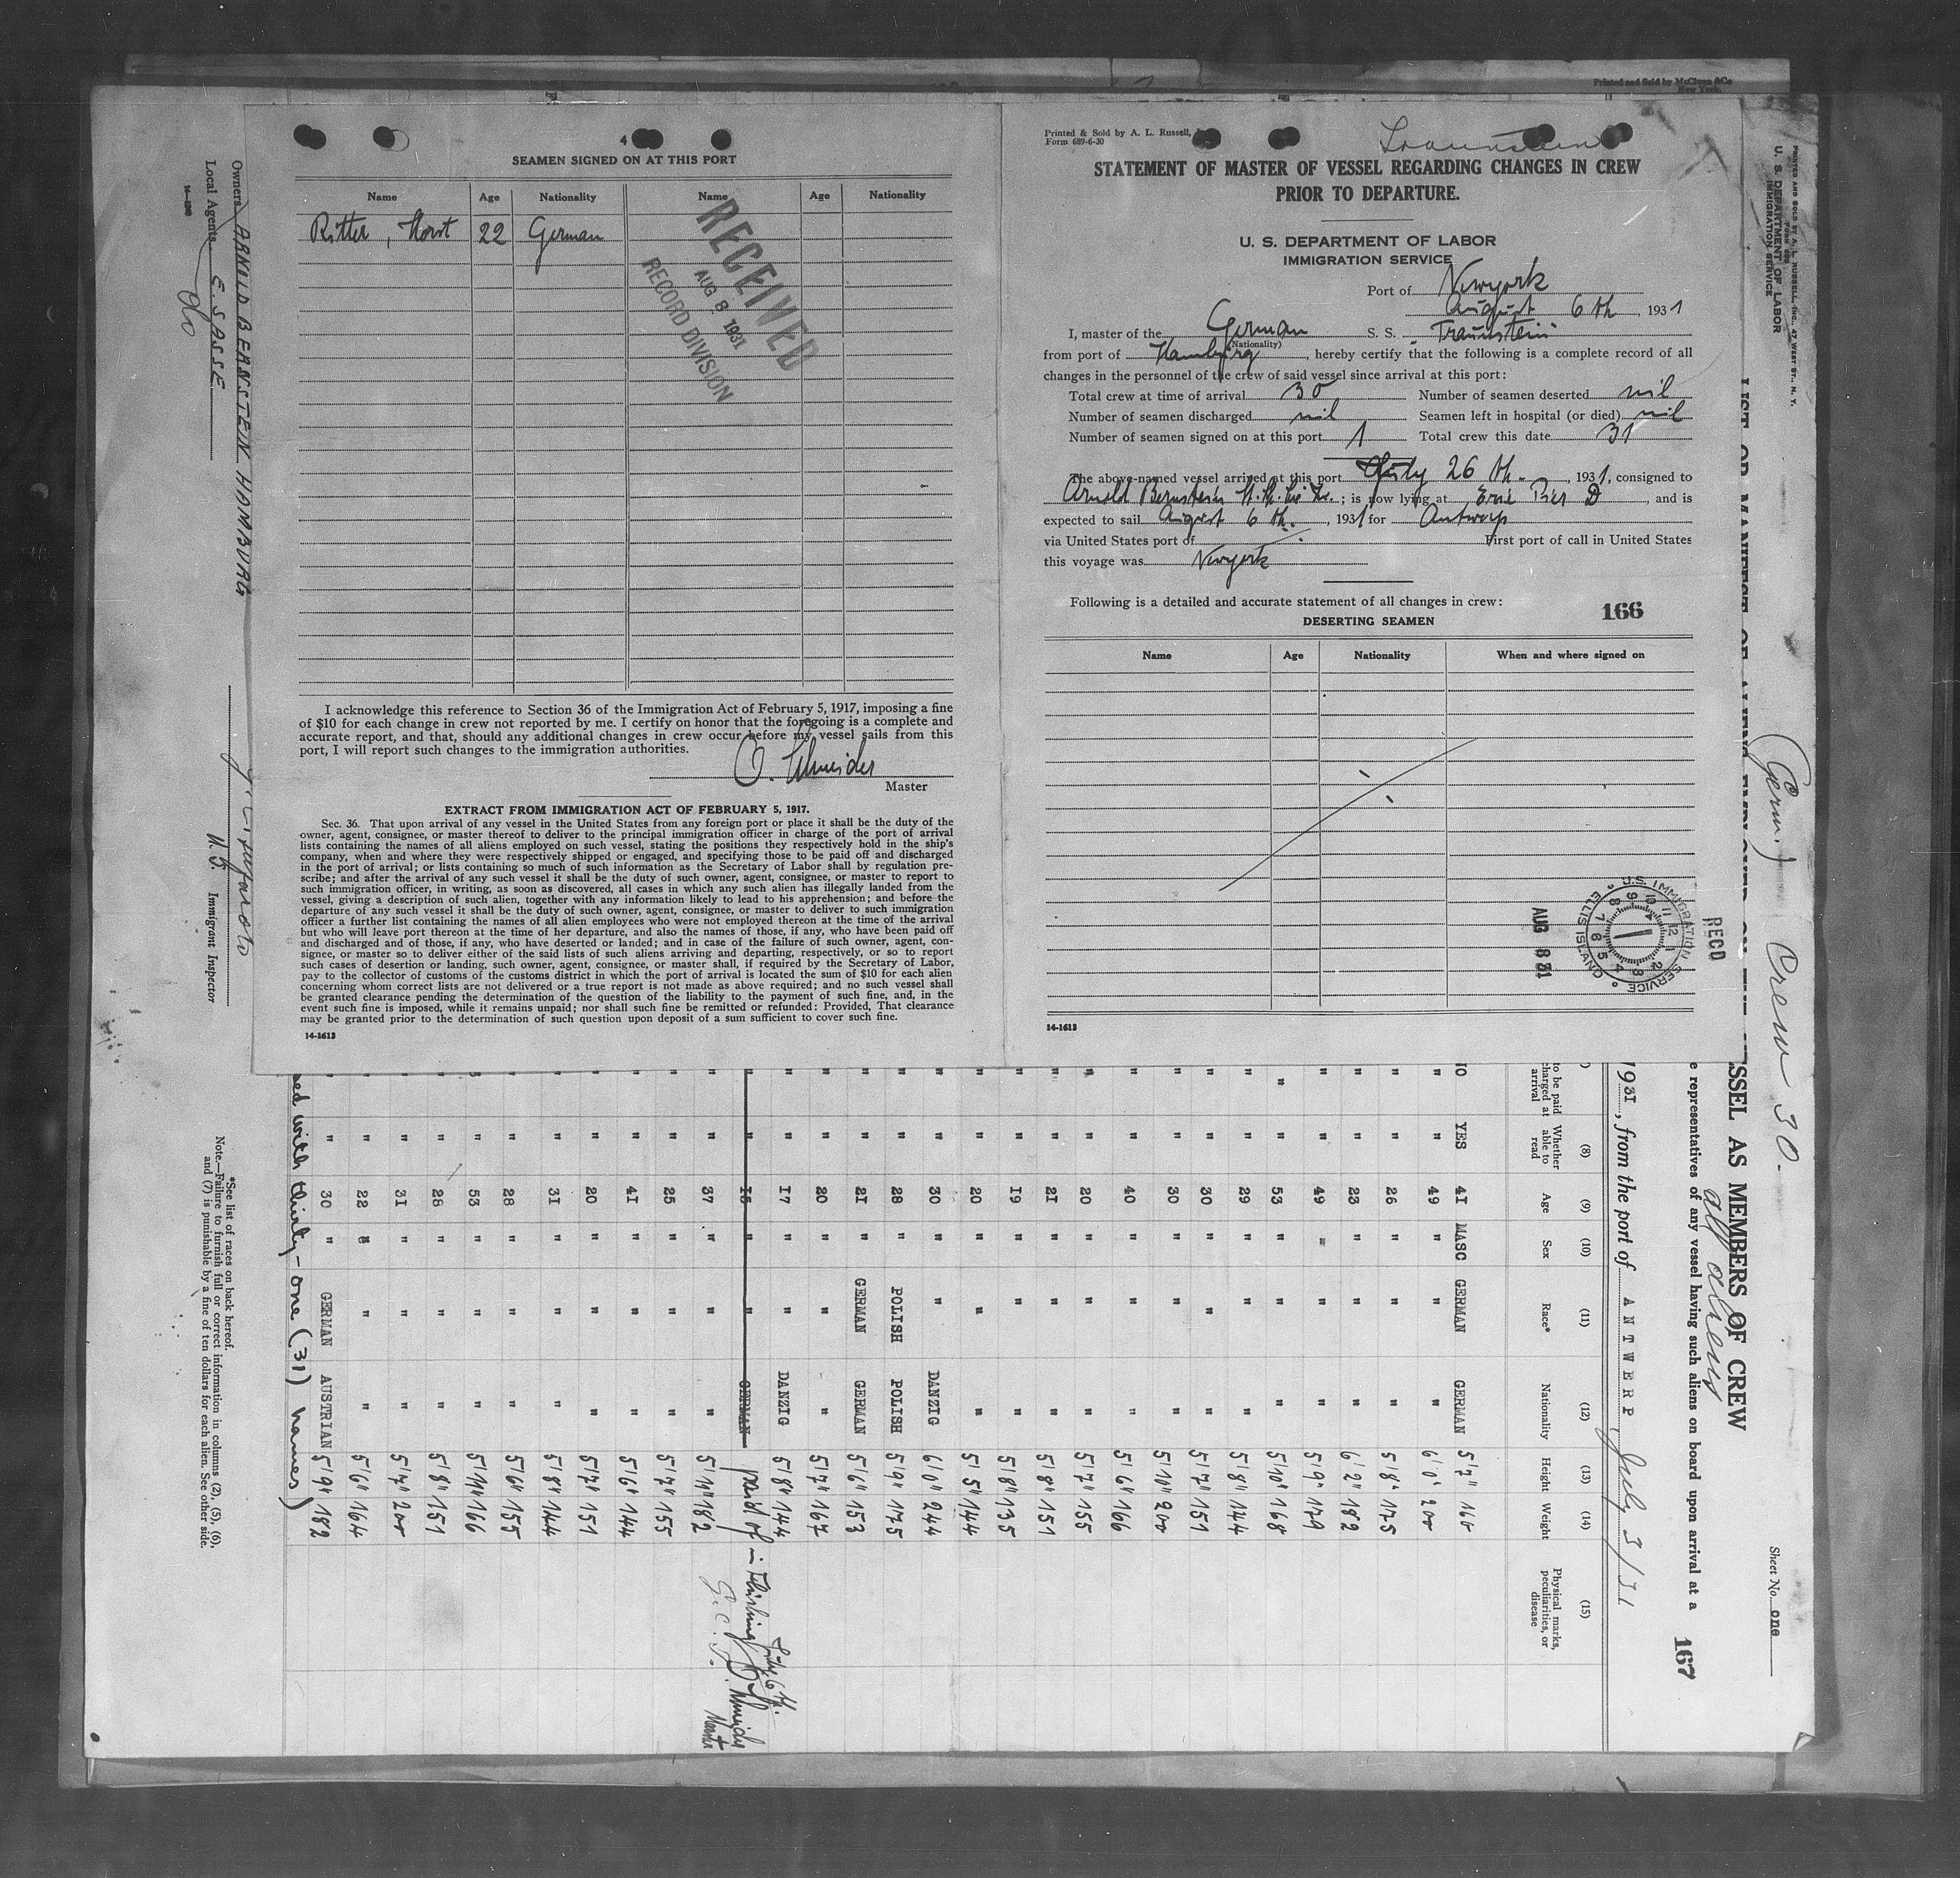 Printed and Sold by McClunn & Co
New York.
4
SEAMEN SIGNED ON AT THIS PORT
Name Age Nationality Name Age Nationality
Ritter, Horst 22 German
RECEIVED
AUG 8 1931
RECORD DIVISION
I acknowledge this reference to Section 36 of the Immigration Act of February 5, 1917, imposing a fine
of $10 for each change in crew not reported by me. I certify on honor that the foregoing is a complete and
accurate report, and that, should any additional changes in crew occur before my vessel sails from this
port, I will report such changes to the immigration authorities.
O. Schneider
Master
EXTRACT FROM IMMIGRATION ACT OF FEBRUARY 5, 1917.
Sec. 36. That upon arrival of any vessel in the United States from any foreign port or place it shall be the duty of the
owner, agent, consignee, or master thereof to deliver to the principal immigration officer in charge of the port of arrival
lists containing the names of all aliens employed on such vessel, stating the positions they respectively hold in the ship's
company, when and where they were respectively shipped or engaged, and specifying those to be paid off and discharged
in the port of arrival; or lists containing so much of such information as the Secretary of Labor shall by regulation pre-
scribe; and after the arrival of any such vessel it shall be the duty of such owner, agent, consignee, or master to report to
such immigration officer, in writing, as soon as discovered, all cases in which any such alien has illegally landed from the
vessel, giving a description of such alien, together with any information likely to lead to his apprehension; and before the
departure of any such vessel it shall be the duty of such owner, agent, consignee, or master to deliver to such immigration
officer a further list containing the names of all alien employees who were not employed thereon at the time of the arrival
but who will leave port thereon at the time of her departure, and also the names of those, if any, who have been paid off
and discharged and of those, if any, who have deserted or landed; and in case of the failure of such owner, agent, con-
signee, or master so to deliver either of the said lists of such aliens arriving and departing, respectively, or so to report
such cases of desertion or landing, such owner, agent, consignee, or master shall, if required by the Secretary of Labor,
pay to the collector of customs of the customs district in which the port of arrival is located the sum of $10 for each alien
concerning whom correct lists are not delivered or a true report is not made as above required; and no such vessel shall
be granted clearance pending the determination of the question of the liability to the payment of such fine, and, in the
event such fine is imposed, while it remains unpaid; nor shall such fine be remitted or refunded: Provided, That clearance
may be granted prior to the determination of such question upon deposit of a sum sufficient to cover such fine.
14-1613
Printed & Sold by A. L. Russell,
Form 689-6-30
Traunstein
STATEMENT OF MASTER OF VESSEL REGARDING CHANGES IN CREW
PRIOR TO DEPARTURE.
U. S. DEPARTMENT OF LABOR
IMMIGRATION SERVICE
Port of Newyork
August 6 th, 1931
I, master of the German S. S. Traunstein
(Nationality)
from port of Hamburg, hereby certify that the following is a complete record of all
changes in the personnel of the crew of said vessel since arrival at this port:
Total crew at time of arrival 30 Number of seamen deserted nil
Number of seamen discharged nil Seamen left in hospital (or died) nil
Number of seamen signed on at this port 1 Total crew this date 31
The above-named vessel arrived at this port July 26 th., 1931, consigned to
Arnold Bernstein; is now lying at Erie Pier D, and is
expected to sail August 6 th., 1931 for Antwerp
via United States port of First port of call in United States
this voyage was Newyork
Following is a detailed and accurate statement of all changes in crew:
166
DESERTING SEAMEN
Name Age Nationality When and where signed on
RECD
U.S. IMMIGRATION SERVICE
ELLIS ISLAND
AUG 8 31
14-1613
PRINTED AND SOLD BY A. L. RUSSELL, INC., 47 WEST ST., N. Y.
U. S. DEPARTMENT OF LABOR
IMMIGRATION SERVICE
(Germ.) Crew 30 -
all aliens
Sheet No. one
LIST OR MANIFEST OF ALIENS EMPLOYED ON THE VESSEL AS MEMBERS OF CREW
e representatives of any vessel having such aliens on board upon arrival at a
167
1931, from the port of ANTWERP, July 3/31
(8) (9) (10) (11) (12) (13) (14) (15)
to be paid
charged at
arrival
Whether
able to
read
Age
Sex
Race*
Nationality
Height
Weight
Physical marks,
peculiarities, or
disease
YES 41 MASC GERMAN GERMAN 5'7" 160
" " 49 " " " 6'0" 200
" " 26 " " " 5'8" 175
" " 23 " " " 6'2" 182
" " 49 " " " 5'9" 179
" " 53 " " " 5'10" 168
" " 29 " " " 5'8" 144
" " 30 " " " 5'7" 151
" " 30 " " " 5'10" 200
" " 40 " " " 5'6" 166
" " 20 " " " 5'7" 155
" " 21 " " " 5'8" 151
" " 19 " " " 5'8" 135
" " 20 " " " 5'5" 144
" " 30 " " DANZIG 6'0" 244
" " 28 " POLISH POLISH 5'9" 175
" " 21 " GERMAN GERMAN 5'6" 153
" " 20 " " " 5'7" 167
" " 17 " " DANZIG 5'8" 144
" " 15 " " GERMAN paid of in Flushing July 6 th. O. Schneider Master
" " 37 " " " 5'11" 182
" " 25 " " " 5'7" 155
" " 41 " " " 5'6" 144
" " 20 " " " 5'7" 151
" " 31 " " " 5'8" 144
" " 28 " " " 5'6" 155
" " 53 " " " 5'11" 166
" " 26 " " " 5'8" 151
" " 31 " " " 5'7" 200
" " 22 " " " 5'6" 164
" " 30 " GERMAN AUSTRIAN 5'9" 182
ed with thirty-one (31) names)
Owners ARNOLD BERNSTEIN HAMBURG
Local Agents E. SASSE
do
Immigrant Inspector
*See list of races on back hereof.
Note.—Failure to furnish full or correct information in columns (2), (5), (6),
and (7) is punishable by a fine of ten dollars for each alien. See other side.